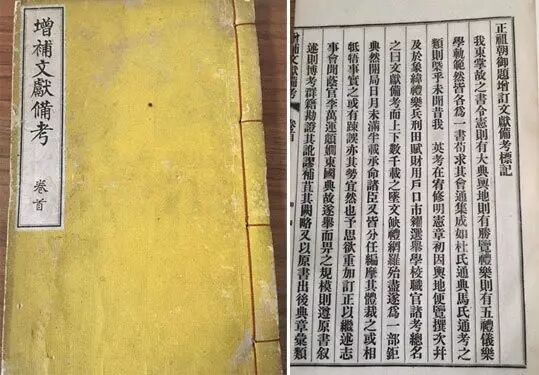 增補文獻備考
卷首
正祖朝御題增訂文獻備考標記
我東掌故之書令憲則有大典輿地則有勝覽禮樂則有五禮儀樂
學軌範然皆各爲一書苟求其會通集成如杜氏通典馬氏通考之
類則槩乎未聞昔我 英考在宥修明憲章初因輿地便覽撰次幷
及於象緯禮樂兵刑田賦財用戶口市糴選舉學校職官諸考總名
之曰文獻備考而上下數千載之墜文缺禮網羅殆盡遂爲一部鉅
典然開局日月未滿半載承命諸臣又皆分任編摩其體裁之或相
牴牾事實之或有踈誤亦其勢宜然也予思欲重加訂正以繼述志
事會聞蔭官李萬運頗嫺東國典故遂舉而畀之規模則遵原書叙
述則博考群籍勘證其訛謬補苴其闕略又以原書出後典章彙類
補文獻備考
卷首